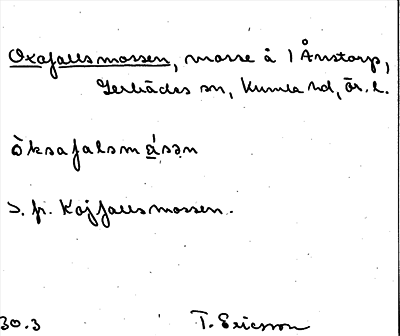 Oxafallsmossen, mosse å 1 Ånstorp,
Gerbäcks sn, Kumla hd, Ör. l.
òksafalsmásən
S. fr. Kajfallsmossen.
30.3 T. Ericsson